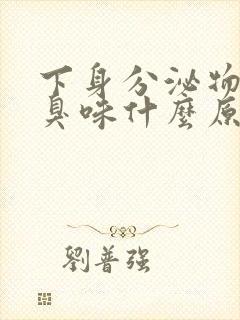 下身分泌物
臭味什麼原
劉普强